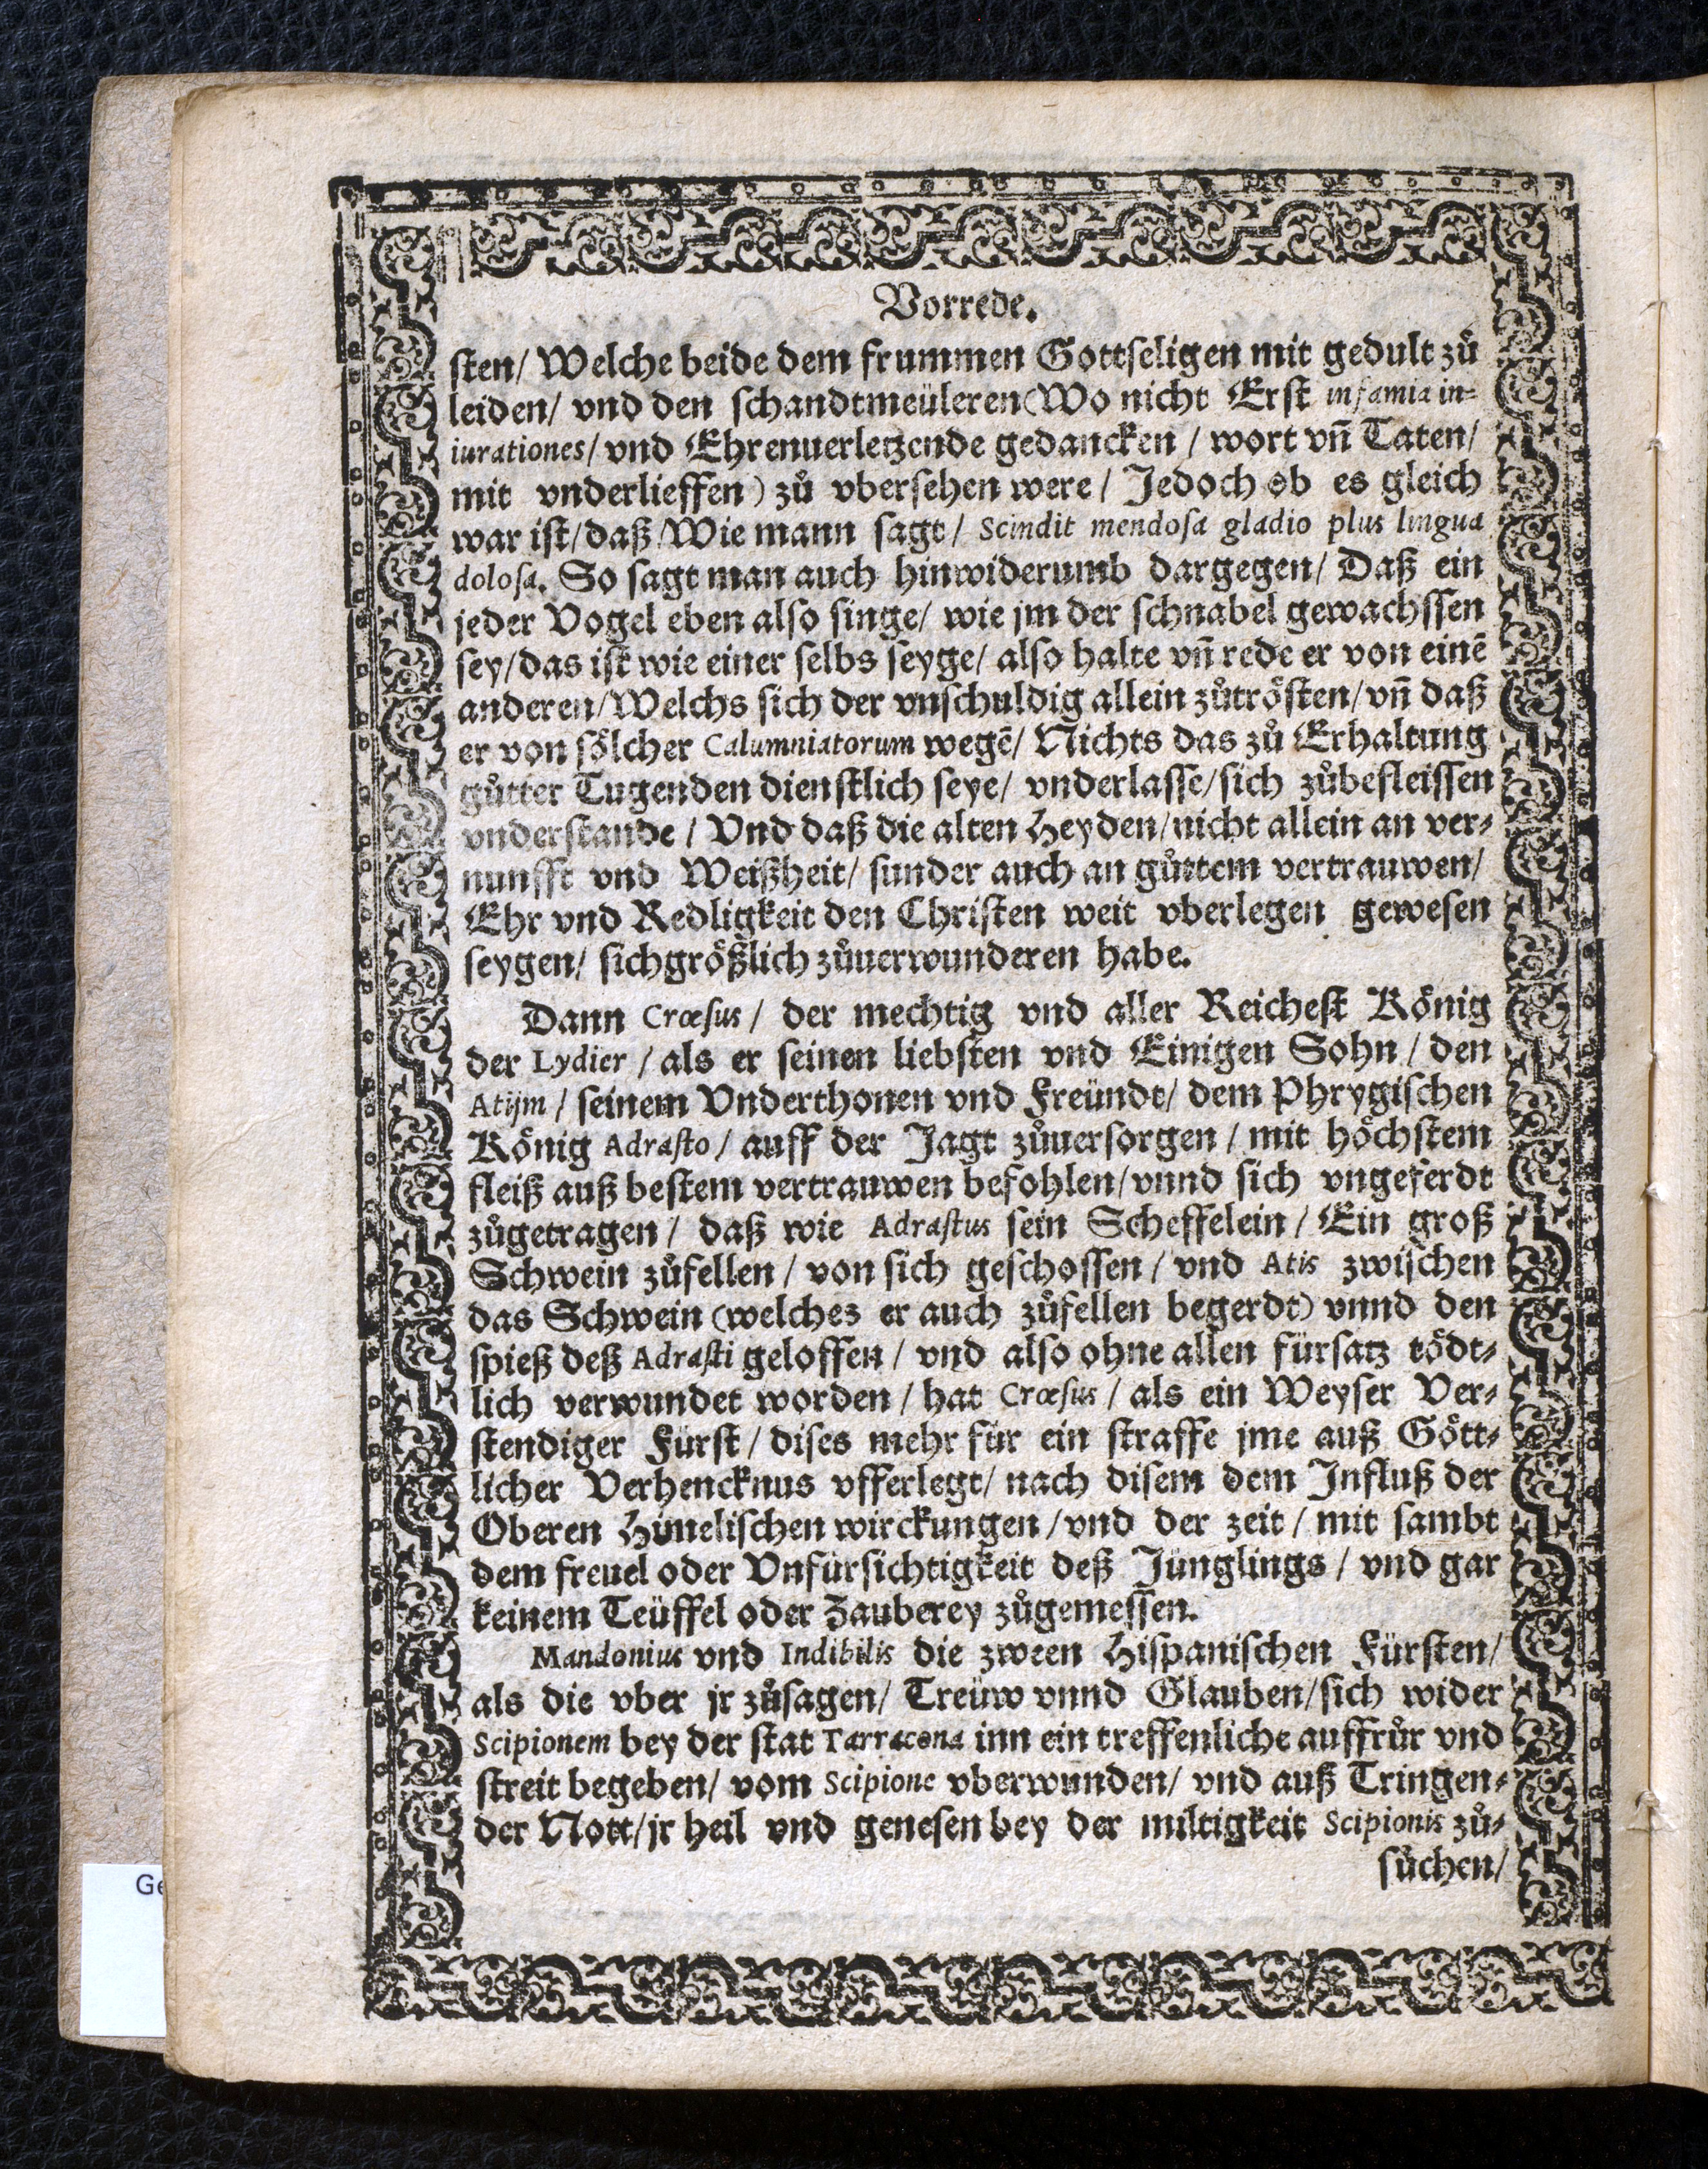 Vorrede.
sten/ Welche beide dem frummen Gottseligen mit gedult zů
leiden/ vnd den schandtmeüleren (Wo nicht Erst infamia in-
iurationes/ vnd Ehrenuerletzende gedancken / wort vñ Taten/
mit vnderlieffen) zů vbersehen were / Jedoch ob es gleich
war ist/daß/Wie mann sagt/ Scindit mendosa gladio plus lingua
dolosa. So sagt man auch hinwiderumb dargegen/ Daß ein
jeder Vogel eben also singe/ wie jm der schnabel gewachssen
sey/das ist wie einer selbs seyge/ also halte vñ rede er von einē
anderen/Welchs sich der vnschuldig allein zůtrösten/vñ daß
er von sölcher Calumniatorum wegē/ Nichts das zů Erhaltung
gůtter Tugenden dienstlich seye/ vnderlasse/sich zůbefleissen
vnderstande / Vnd daß die alten Heyden/nicht allein an ver-
nunfft vnd Weißheit/ sunder auch an gůttem vertrauwen/
Ehr vnd Redligkeit den Christen weit vberlegen gewesen
seygen/ sichgrößlich zůuerwunderen habe.
Dann Crœsus / der mechtig vnd aller Reichest König
der Lydier / als er seinen liebsten vnd Einigen Sohn / den
Atijm / seinem Vnderthonen vnd Freündt/ dem Phrygischen
König Adrasto / auff der Jagt zůuersorgen / mit höchstem
fleiß auß bestem vertrauwen befohlen/vnnd sich vngeferdt
zůgetragen / daß wie Adrastus sein Scheffelein / Ein groß
Schwein zůfellen / von sich geschossen / vnd Atis zwischen
das Schwein (welches er auch zůfellen begerdt) vnnd den
spieß deß Adrasti geloffen / vnd also ohne allen fürsatz tödt-
lich verwundet worden / hat Crœsus / als ein Weyser Ver-
stendiger Fürst / dises mehr für ein straffe jme auß Gött-
licher Verhencknus vfferlegt/ nach disem dem Influß der
Oberen Himelischen wirckungen /vnd der zeit / mit sambt
dem freuel oder Vnfürsichtigkeit deß Jünglings / vnd gar
keinem Teüffel oder Zauberey zůgemessen.
Mandonius vnd Indibilis die zween Hispanischen Fürsten/
als die vber jr zůsagen/ Treüw vnnd Glauben/sich wider
Scipionem bey der stat Tarracona inn ein treffenliche auffrůr vnd
streit begeben/ vom Scipione vberwunden/ vnd auß Tringen-
der Nott/jr heil vnd genesen bey der miltigkeit Scipionis zů-
sůchen/
Ge